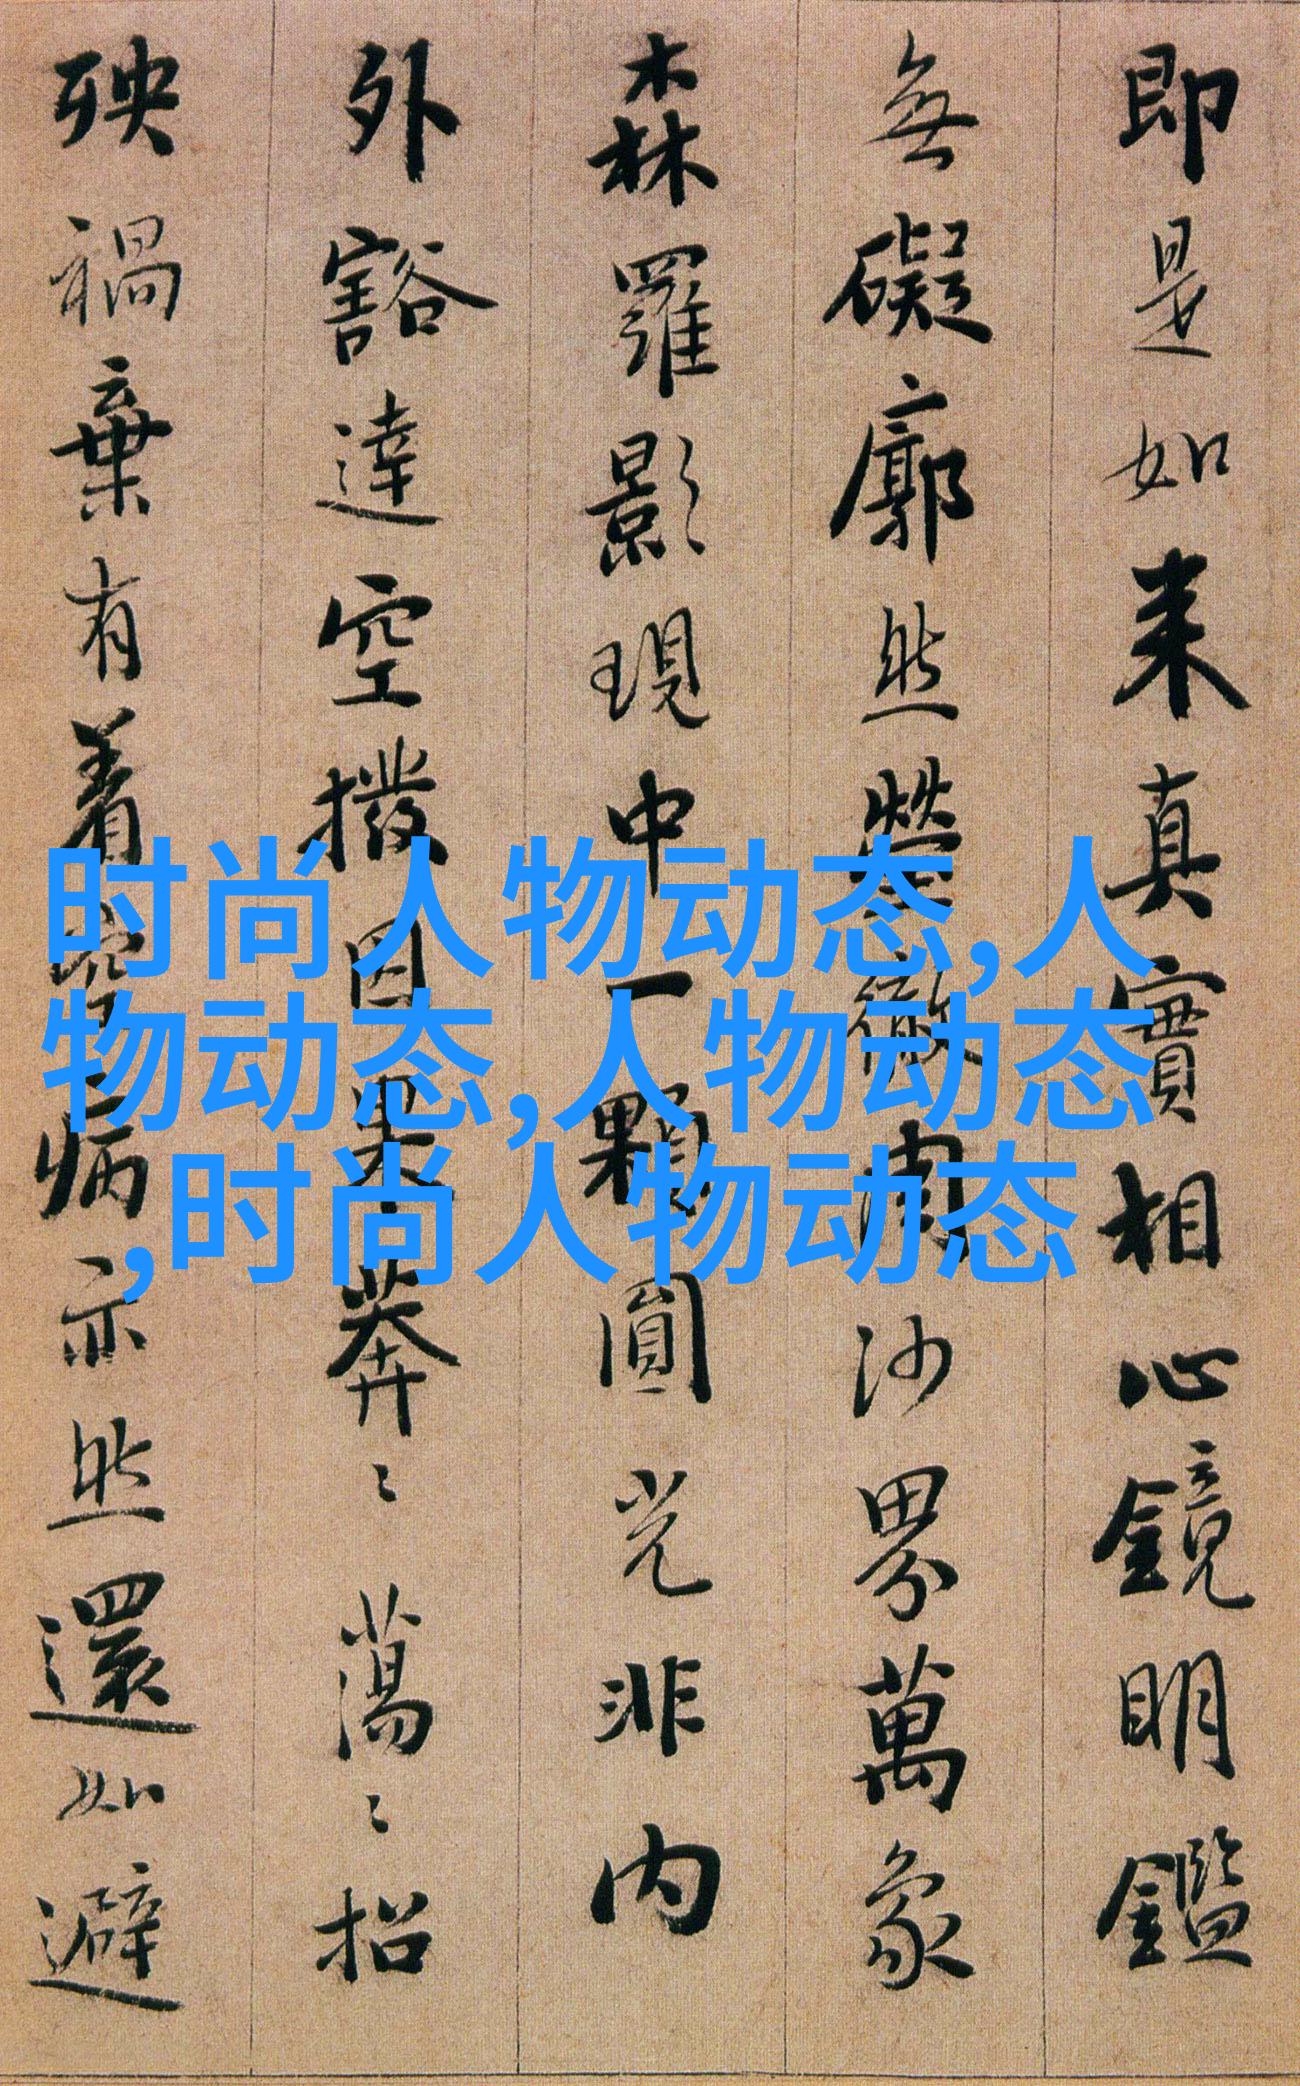 即是如来真實相心鏡明鑑
無礙廓然瑩徹周沙界萬象
森羅影現中一顆圓光非内
外豁達空撥因果莽〻蕩〻招
殃禍棄有着空病亦然還如避
时尚人物动态,人
物动态,人物动态
,时尚人物动态